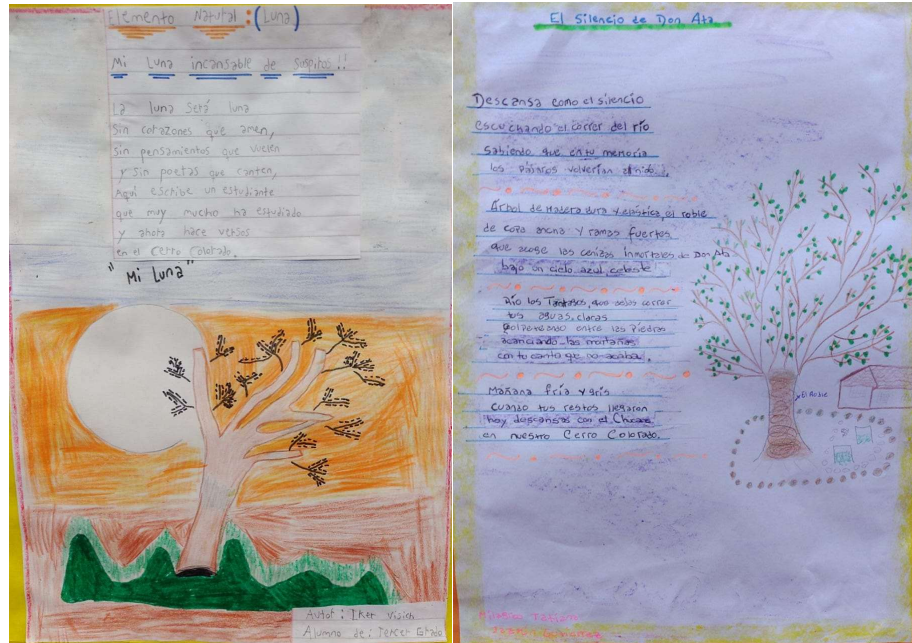 Elemento Natural: (Luna)
Mi Luna incansable de suspiros!!
La luna será luna
Sin corazones que amen,
Sin pensamientos que vuelen
y sin poetas que canten,
Aquí escribe un estudiante
que muy mucho ha estudiado
y ahora hace versos
en el Cerro Colorado.
"Mi Luna"
Autor: Iker Visich
Alumno de: Tercer Grado
El Silencio de Don Ata
Descansa como el silencio
escuchando el correr del río
Sabiendo que en tu memoria
los pájaros volverían al nido.
Árbol de Madera dura y elástica, el roble
de copa ancha y ramas fuertes
que acoge las cenizas inmortales de Don Ata
bajo un cielo azul, celeste.
Río los Tartagos, que selos correr
tus aguas, claras
golpeteando entre las Piedras
acariciando las montañas
con tu canto que no acaba.
Mañana fría y gris
cuando tus restos llegaron
hoy descansas con el Chúcaro
en nuestro Cerro Colorado.
El Roble